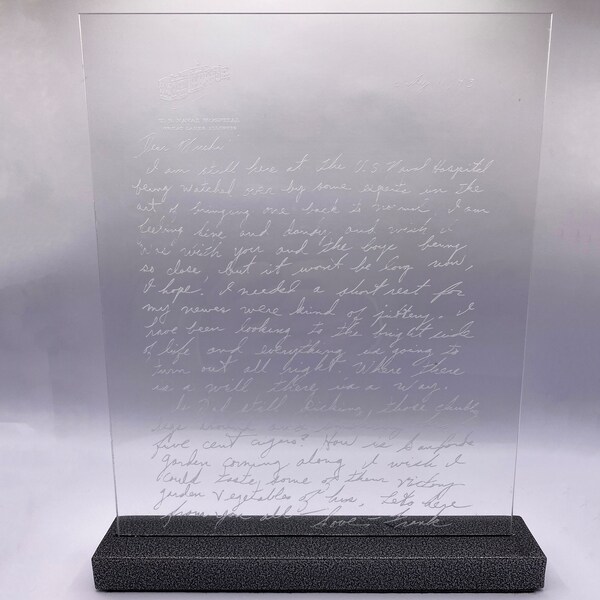 U.S. NAVAL HOSPITAL
I am still here at the U.S. Naval Hospital
being watched over by some experts in the
art of bringing one back to normal. I am
feeling fine and dandy, and wish I
was with you and the boys being
so close, but it won't be long now,
I hope. I needed a short rest for
my nerves were kind of jittery. I
have been looking to the bright side
of life and everything is going to
turn out all right. Where there
is a will there is a way.
still kicking, those
five cent cigars? How is
garden coming along I wish I
could taste some of their victory
garden vegetables of his, Lets hear
from you all Love Frank